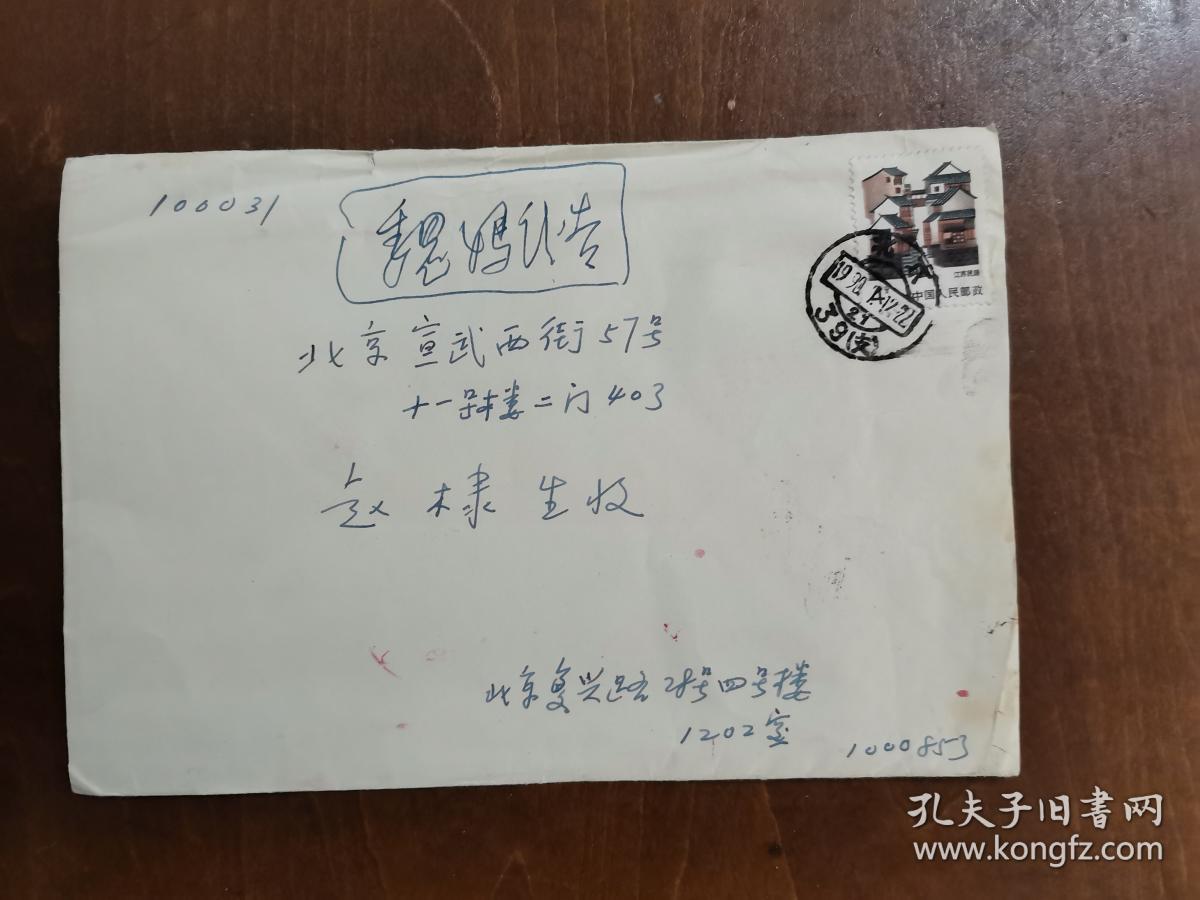 100031
魏 讣告
北京宣武西街57号
十一号楼二门403
赵棣生收
江苏民居
中国人民邮政
北京
1990
39(支)
北京复兴路24号四号楼
1202室
1000853
孔夫子旧书网
www.kongfz.com